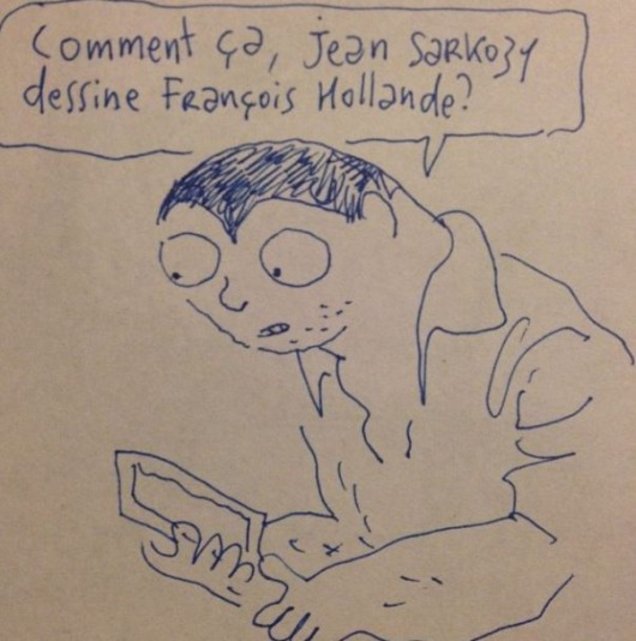 Comment ça, Jean Sarkozy
dessine François Hollande?